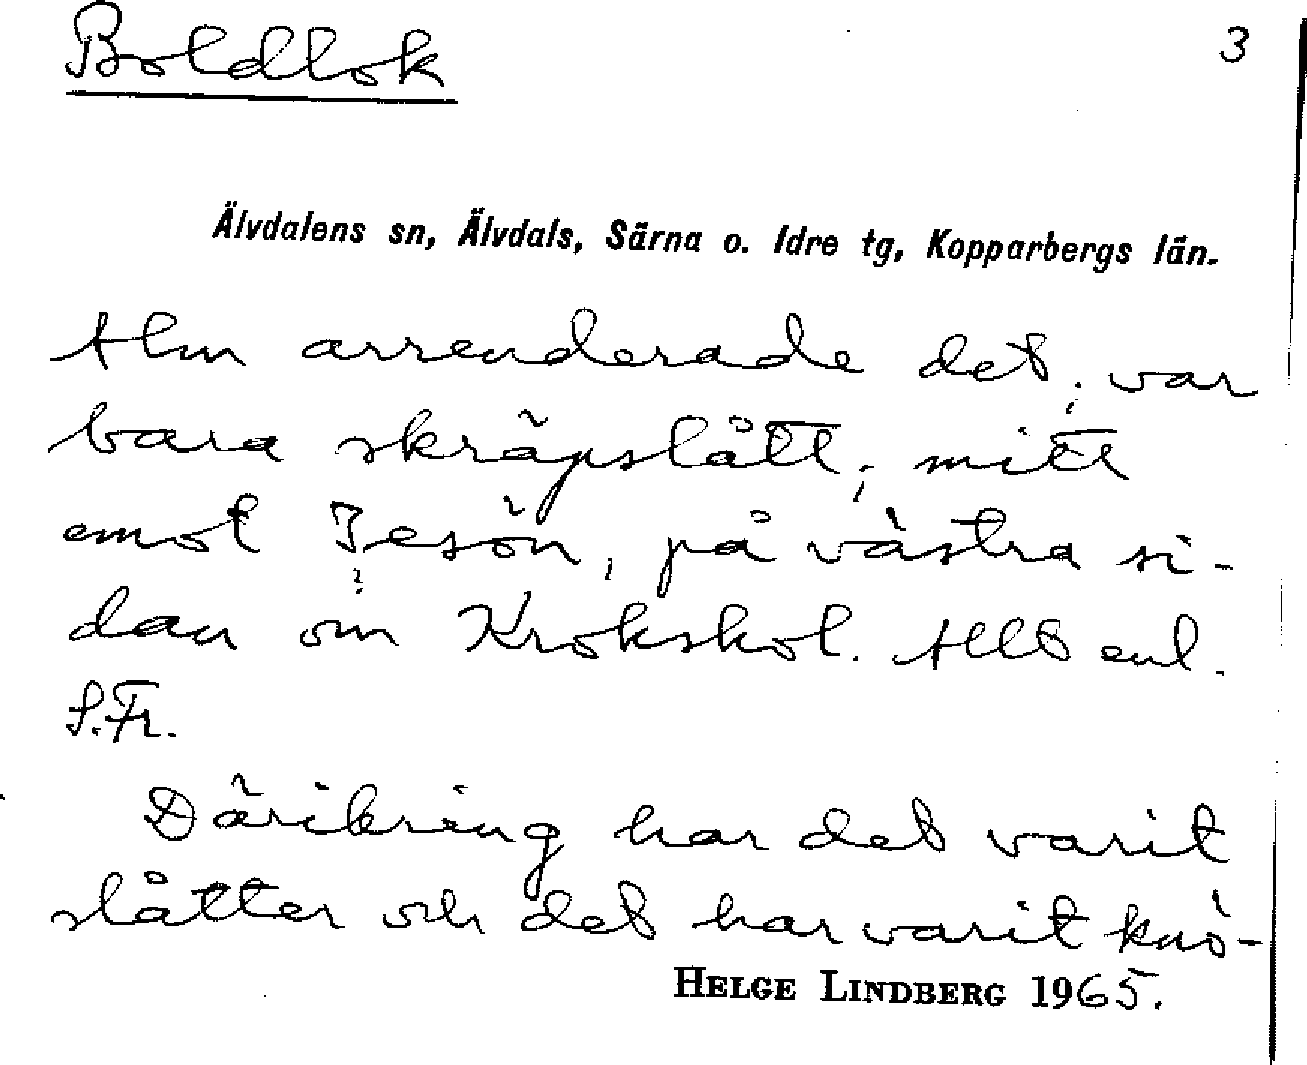 Boldlok
3
Älvdalens sn, Älvdals, Särna o. Idre tg, Kopparbergs län.
Alm arrenderade det; var
bara skräpslått; mitt
emot Jesön, på västra si-
dan om Krokskol. Allt enl.
S.Fr.
Därikring har det varit
slåtter och det har varit knö-
HELGE LINDBERG 1965.